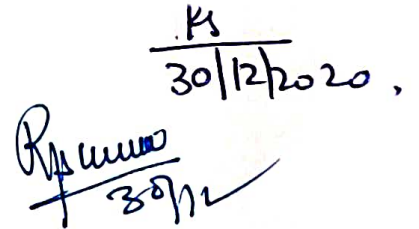 Ks
30/12/2020,
30/12